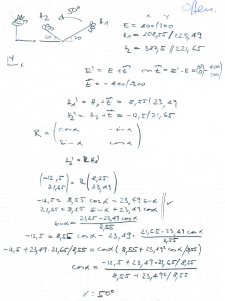 50°
k2
k1
x y
E = 400/200
k1 = 408,55/223,49
k2 = 387,5/221,65
E' = E + t
t = -400/-200
k1' = k1 + t = 8,55/23,49
k2' = k2 + t = -12,5/21,65
R = ( cos α - sin α
sin α cos α )
k2' = R k1'
( -12,5
21,65 ) = R ( 8,55
23,49 )
-12,5 = 8,55 cos α - 23,49 sin α
21,65 = 8,55 sin α + 23,49 cos α
sin α = 21,65 - 23,49 cos α / 8,55
-12,5 = 8,55 cos α - 23,49 · 21,65 - 23,49 cos α / 8,55
-12,5 + 23,49 · 21,65/8,55 = cos α ( 8,55 + 23,49² / 8,55 )
cos α = -12,5 + 23,49 · 21,65/8,55 / 8,55 + 23,49²/8,55
α = 50°